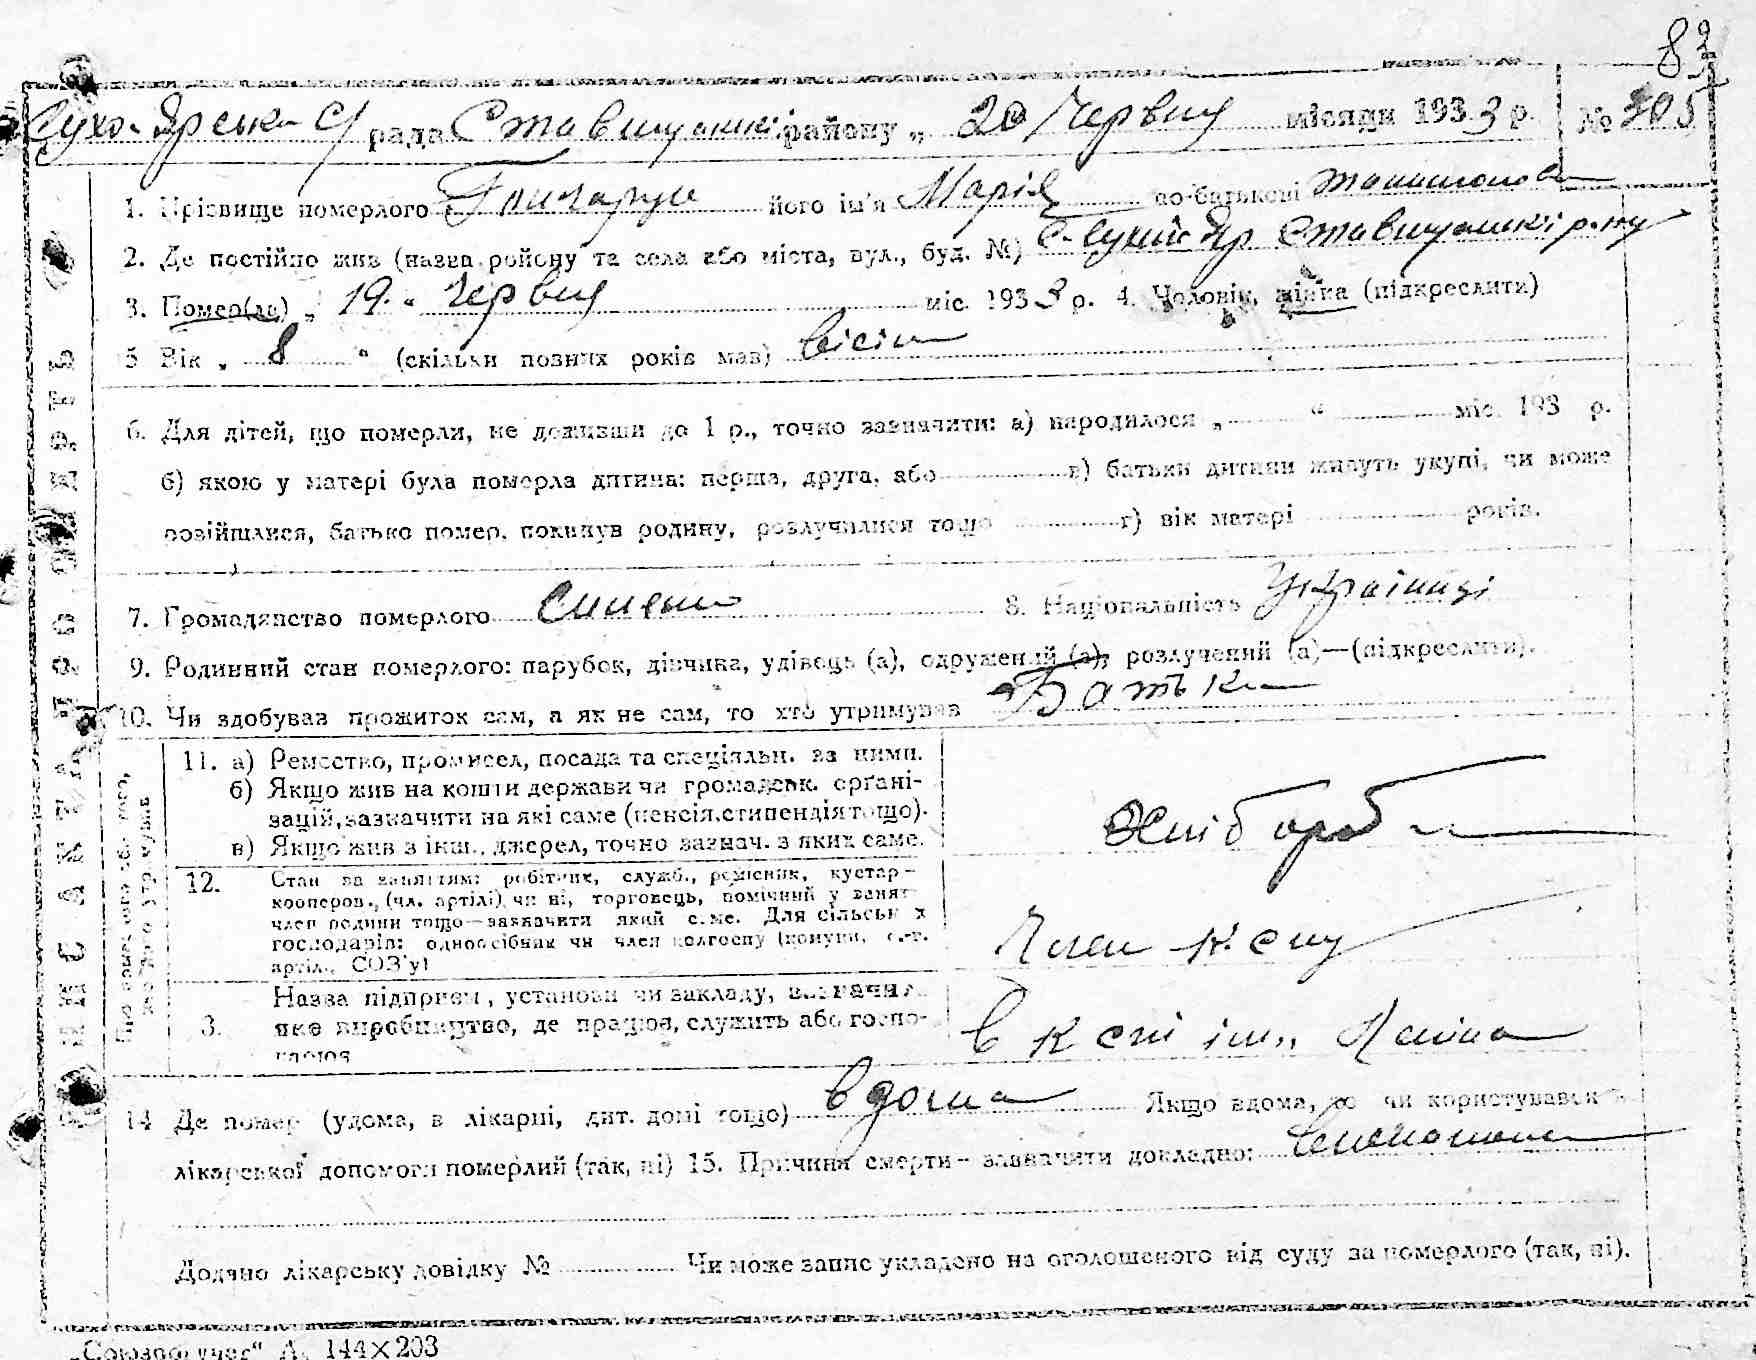 82
Сухо-Ярська С/ рада Ставищанськ. району „ 20 Червня місяця 1933 р. № 305
1. Прізвище померлого Гончарук його ім'я Марія по-батькові
2. Де постійно жив (назва району та села або міста, вул., буд. №) С. Сухий Яр Ставищанські р-ну
3. Помер(ла) „ 19 “ Червня міс. 1933 р. 4. Чоловік, жінка (підкреслити)
5 Вік „ 8 “ (скільки повних років мав) вісім
6. Для дітей, що померли, не доживши до 1 р., точно зазначити: а) народилося „ “ міс. 193 р.
б) якою у матері була померла дитина: перша, друга, або в) батьки дитини живуть укупі, чи може
розійшлися, батько помер, покинув родину, розлучилися тощо г) вік матері років.
7. Громадянство померлого 8. Національність Українці
9. Родинний стан померлого: парубок, дівчина, удівець (а), одружений (а), розлучений (а)—(підкреслити).
10. Чи здобував прожиток сам, а як не сам, то хто утримував Батьки
11. а) Ремество, промисел, посада та спеціяльн. за ними.
б) Якщо жив на кошти держави чи громадськ. органі-
зацій, зазначити на які саме (пенсія, стипендія тощо).
в) Якщо жив з інш. джерел, точно зазнач. з яких саме.
Хлібороб
12. Стан за заняттям: робітник, служб., ремісник, кустар-
кооперов., (чл. артілі) чи ні, торговець, помічний у занят
член родини тощо—зазначити який саме. Для сільськ х
господарів: одноосібник чи член колгоспу (комуни, с.-г.
артіл., СОЗ'у)
Член к-спу
3. Назва підприєм, установи чи закладу, визначил
яке виробництво, де працює, служить або госпо-
дарює
в кспі ім. Леніна
14 Де помер (удома, в лікарні, дит. домі тощо) вдома Якщо вдома, то чи користувався
лікарської допомоги померлий (так, ні) 15. Причина смерти - зазначити докладно:
Додано лікарську довідку № Чи може запис укладено на оголошеного від суду за померлого (так, ні).
ПИСАТИ ЧІТКО Й ДОКЛАДНО
„Союзоргучет“ А. 144×203